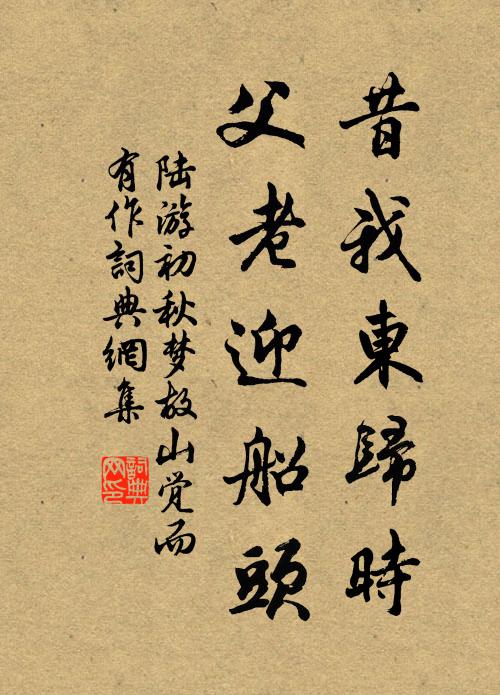 昔我東歸時
父老迎船頭
陆游初秋梦故山觉而
有作詞典網集
詞典
网印